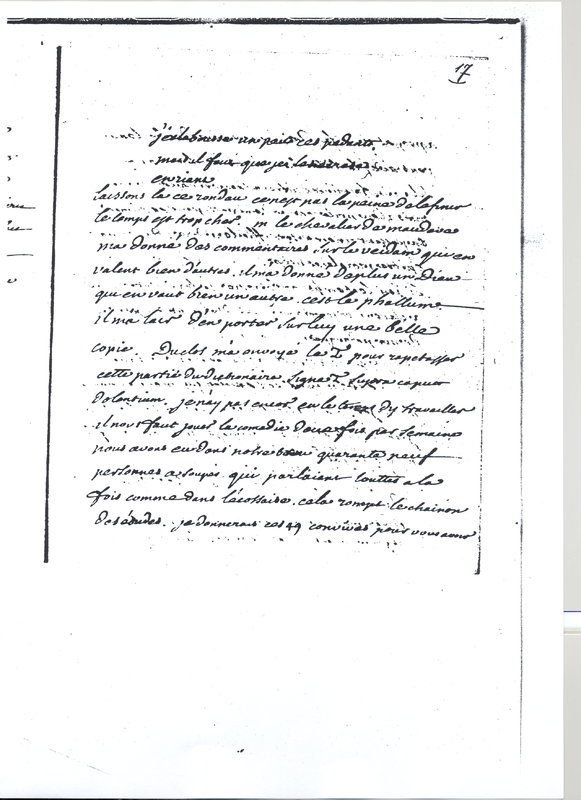 17
j'ai la
mais il faut que j'en
en riant
laissons la ce rondau ce n'est pas la peine de le finir
le temps est trop cher. m le chevalier de maudave
ma donné des commentaires sur le veidam qui en
valent bien d'autres. il ma donné de plus un Dieu
qui en vaut bien un autre. c'est le phallum
il ma l'air d'en porter sur luy une belle
copie. Duclos m'a envoyé le T pour rapetasser
cette partie du dictionaire. signa T super caput
dolentium. je n'ay pas encor eu le temps dy travailler
il nous faut jouer la comedie deux fois par semaine
nous avons eu dans notre quarante neuf
personnes a souper qui parlaient touttes a la
fois comme dans l'écossaise. cela rompt le chainon
des études. je donnerais ces 49 convives pour vous avoir